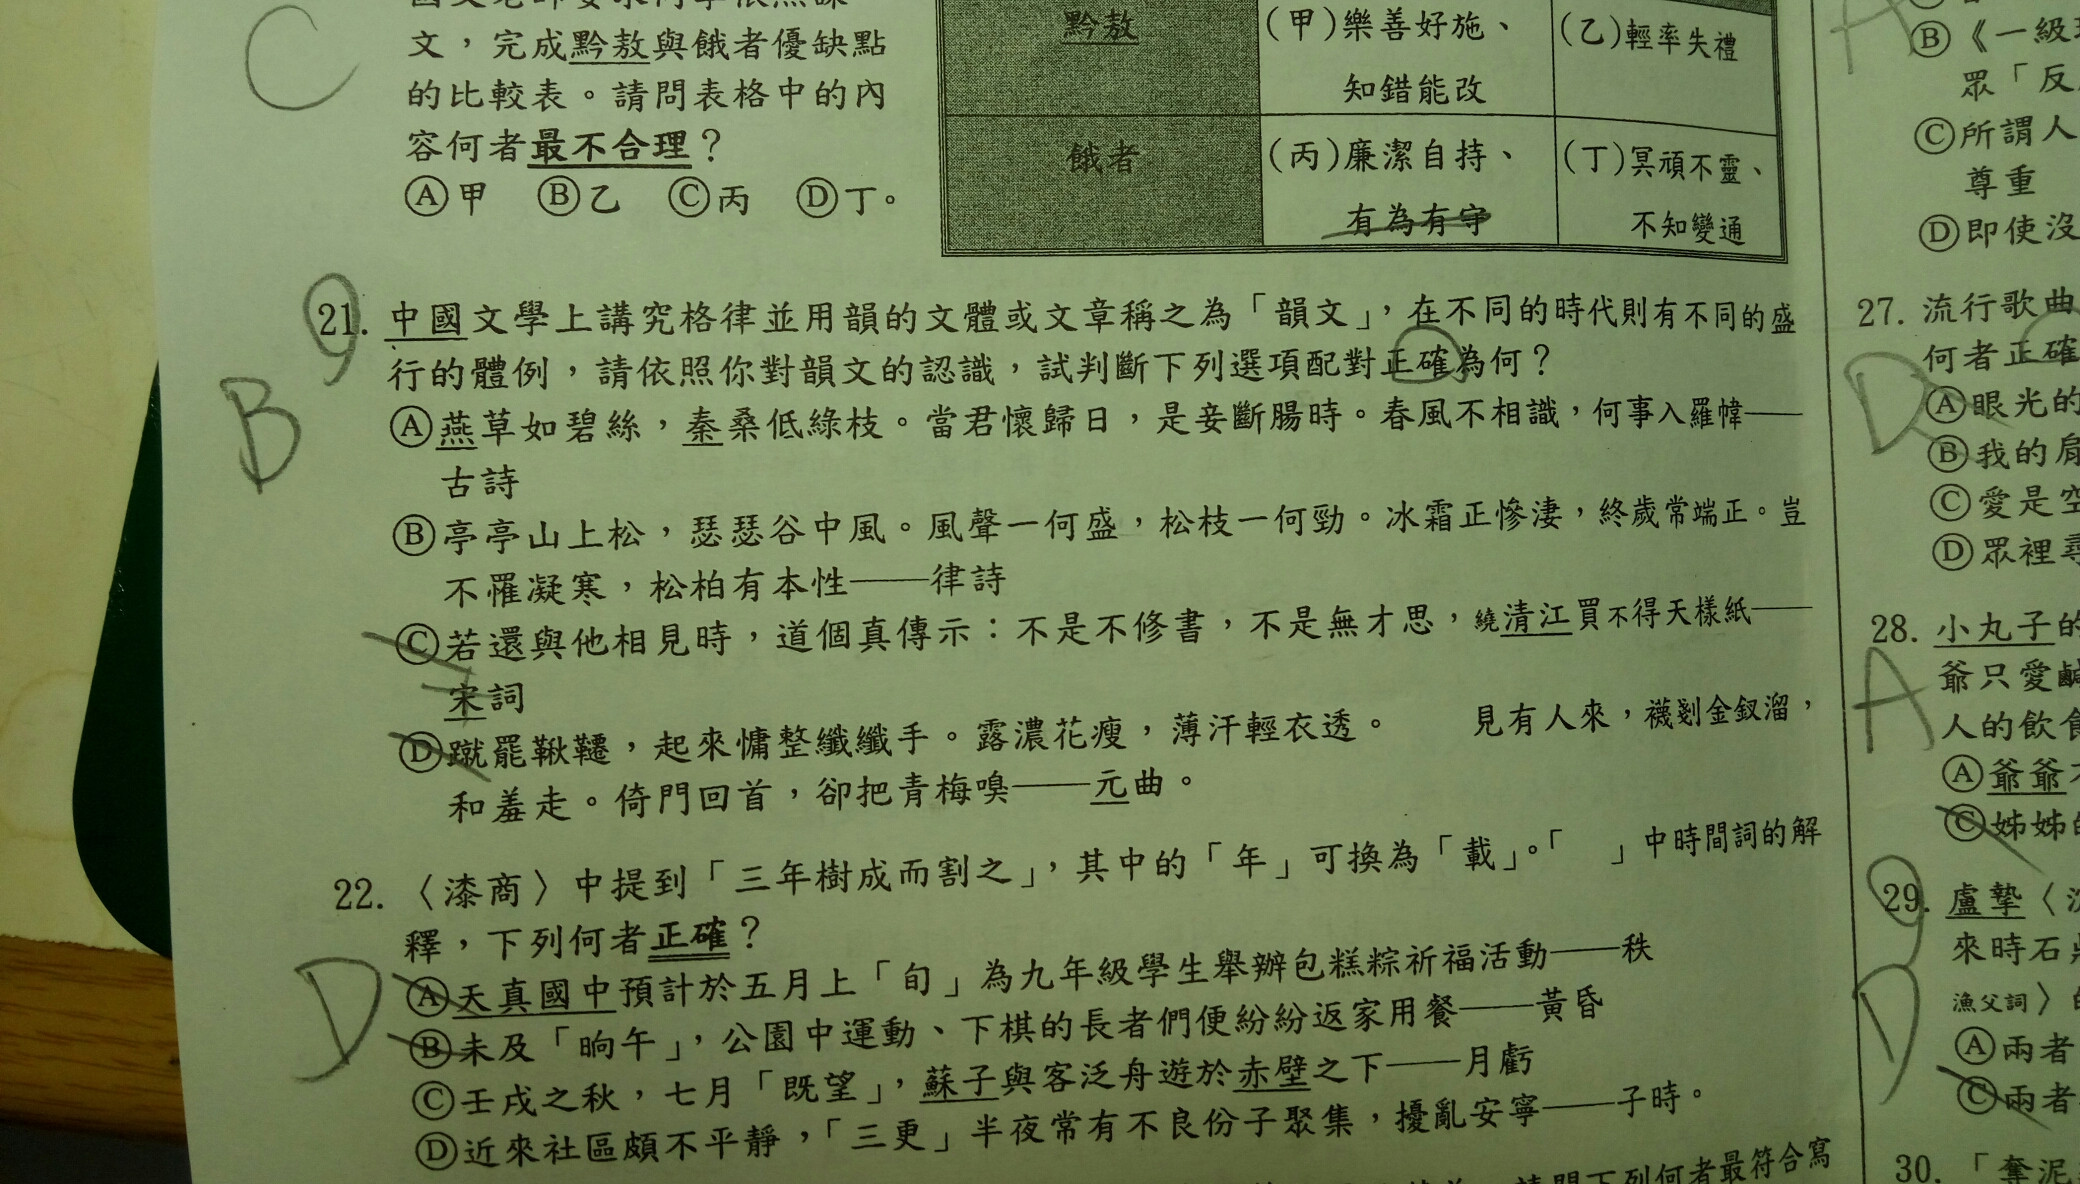 文，完成黔敖與餓者優缺點
的比較表。請問表格中的內
容何者最不合理？
Ⓐ甲 Ⓑ乙 Ⓒ丙 Ⓓ丁。
C
黔敖
(甲)樂善好施、
知錯能改
(乙)輕率失禮
餓者
(丙)廉潔自持、
有為有守
(丁)冥頑不靈、
不知變通
B
21. 中國文學上講究格律並用韻的文體或文章稱之為「韻文」，在不同的時代則有不同的盛
行的體例，請依照你對韻文的認識，試判斷下列選項配對正確為何？
Ⓐ燕草如碧絲，秦桑低綠枝。當君懷歸日，是妾斷腸時。春風不相識，何事入羅幃——
古詩
Ⓑ亭亭山上松，瑟瑟谷中風。風聲一何盛，松枝一何勁。冰霜正慘淒，終歲常端正。豈
不罹凝寒，松柏有本性——律詩
Ⓒ若還與他相見時，道個真傳示：不是不修書，不是無才思，繞清江買不得天樣紙——
宋詞
Ⓓ蹴罷鞦韆，起來慵整纖纖手。露濃花瘦，薄汗輕衣透。 見有人來，襪剗金釵溜，
和羞走。倚門回首，卻把青梅嗅——元曲。
D
22.〈漆商〉中提到「三年樹成而割之」，其中的「年」可換為「載」。「 」中時間詞的解
釋，下列何者正確？
Ⓐ天真國中預計於五月上「旬」為九年級學生舉辦包糕粽祈福活動——秩
Ⓑ未及「晌午」，公園中運動、下棋的長者們便紛紛返家用餐——黃昏
Ⓒ壬戌之秋，七月「既望」，蘇子與客泛舟遊於赤壁之下——月虧
Ⓓ近來社區頗不平靜，「三更」半夜常有不良份子聚集，擾亂安寧——子時。
A
Ⓑ《一級
眾「反
Ⓒ所謂人
尊重
Ⓓ即使沒
27. 流行歌曲
何者正確
D
Ⓐ眼光的
Ⓑ我的肩
Ⓒ愛是空
Ⓓ眾裡尋
28. 小丸子的
爺只愛鹹
人的飲食
A
Ⓐ爺爺
Ⓒ姊姊的
29. 盧摯〈
來時石
漁父詞〉的
D
Ⓐ兩者
Ⓒ兩者
30.「奪泥
請問下列何者最符合寫